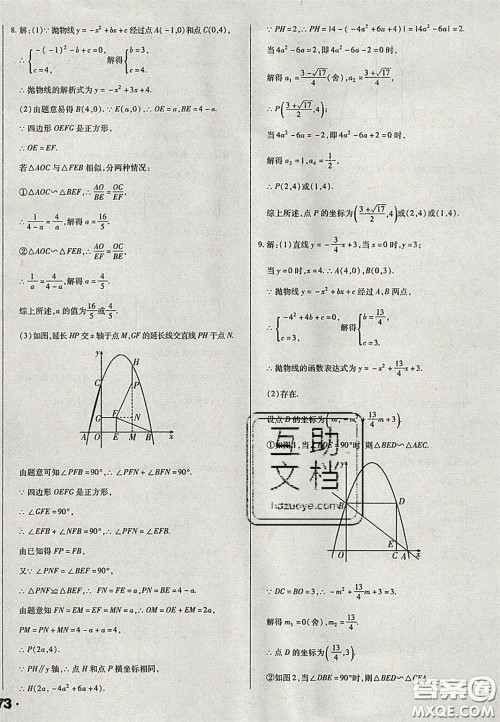 8. 解:(1)∵ 抛物线 y=-x²+bx+c 经过点 A(-1,0)和点 C(0,4),
∴ {-(-1)²-b+c=0, c=4, 解得 {b=3, c=4.
∴ 抛物线的解析式为 y=-x²+3x+4.
(2)由题意易得 B(4,0). ∵ E(a,0), ∴ OE=a, BE=4-a.
∵ 四边形 OEFG 是正方形,
∴ OE=EF.
若△AOC 与△FEB 相似,分两种情况:
①△AOC∽△BEF, ∴ AO/BE=OC/EF.
∴ 1/(4-a)=4/a, 解得 a=16/5.
②△AOC∽△FEB, ∴ AO/FE=OC/BE.
∴ 1/a=4/(4-a), 解得 a=4/5.
综上所述, a 的值为 16/5 或 4/5.
(3)如图,延长 HP 交 x 轴于点 M, GF 的延长线交直线 PH 于点 N.
y
H
C
P
G
F
N
A
O
E
M
B
x
由题意可知∠PFB=90°, ∴ ∠PFN+∠BFN=90°.
∵ 四边形 OEFG 是正方形,
∴ ∠GFE=∠EFN=90°, ∴ ∠BFN+∠EFB=90°.
∴ ∠PFN=∠EFB.
由已知得 FP=FB,
又∵ ∠PNF=∠BEF=90°,
∴ △PNF≌△BEF. ∴ FN=FE=EM, PN=BE.
由题意知 FN=EM=EF=MN=OE=a, ∴ OM=OE+EM=2a,
PM=PN+NM=BE+EF=4-a+a=4.
∴ P(2a,4).
又∵ PH∥y 轴, ∴ 点 H 和点 P 横坐标相同,
∴ H(2a,-4a²+6a+4).
73
∵ PH=2, ∴ |4a²-6a|=2,
当 4a²-6a-2=0 时,
解得 a₁=(3-√17)/4(舍), a₂=(3+√17)/4.
∴ P((3+√17)/2,4).
当 4a²-6a+2=0 时,
解得 a₃=1, a₄=1/2.
∴ P(2,4)或(1,4).
综上所述,点 P 的坐标为((3+√17)/2,4)或(2,4)或(1,4).
9. 解:(1)直线 y=-3/4x+3, 当 x=0 时, y=3;
当 y=0 时, x=4. ∴ A(4,0), B(0,3).
∵ 抛物线 y=-x²+bx+c 经过 A, B 两点,
∴ {-4²+4b+c=0, c=3, 解得 {b=13/4, c=3.
∴ 抛物线的函数表达式为 y=-x²+13/4x+3.
(2)存在.
设点 D 的坐标为(m,-m²+13/4m+3).
①如图 1, 当∠BDE=90°时, 则△BED∽△AEC.
y
B
D
E
O
C
A
x
∵ DC=BO=3, ∴ -m²+13/4m+3=3.
解得 m₁=0(舍), m₂=13/4.
∴ 点 D 的坐标为(13/4,3).
②如图 2, 当∠DBE=90°时, 则△BED∽△CEA.
互助
文档
hdzuoye.com
答案圈
MXQE.COM